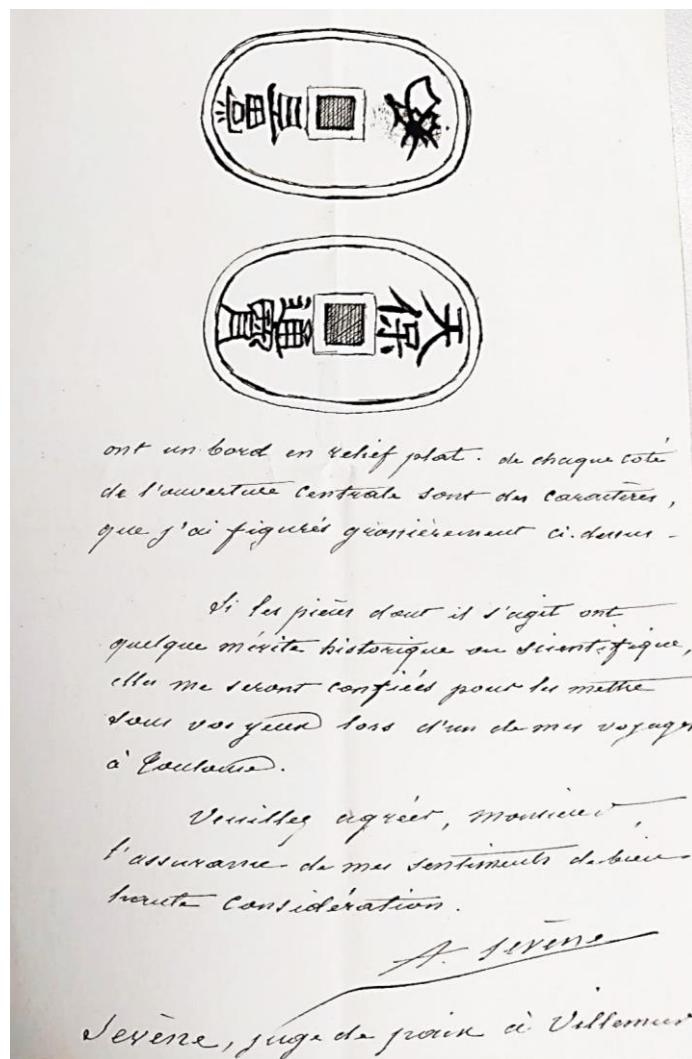 當百
天保通寳
ont un bord en relief plat. de chaque coté
de l'ouverture centrale sont des caractères,
que j'ai figurés grossièrement ci-dessus -
Si les pièces dont il s'agit ont
quelque mérite historique ou scientifique,
elles me seront confiées pour les mettre
sous vos yeux lors d'un de mes voyages
à Toulouse.
Veuillez agréer, monsieur,
l'assurance de mes sentiments de bien
haute considération.
A. Sevène
Sevène, juge de paix à Villemur